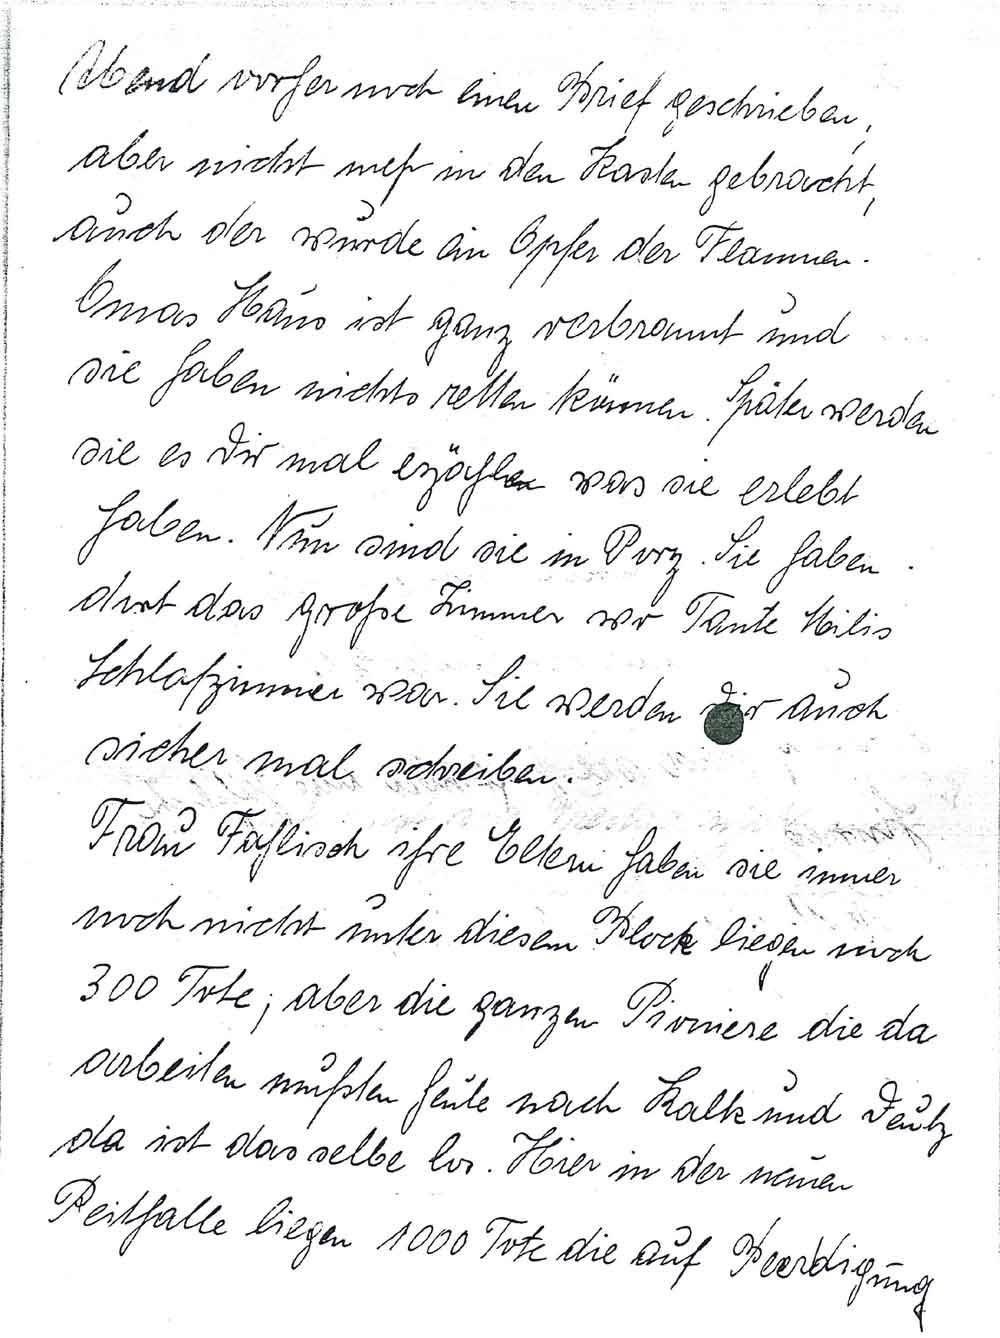 Abend vorher noch einen Brief geschrieben,
aber nicht mehr in den Kasten gebracht,
auch der wurde ein Opfer der Flammen.
Omas Haus ist ganz verbrannt und
sie haben nichts retten können. Später werden
sie es Dir mal erzählen was sie erlebt
haben. Nun sind sie in Porz. Sie haben
dort das große Zimmer wo Tante Milis
Schlafzimmer war. Sie werden Dir auch
sicher mal schreiben.
Frau Fahlisch ihre Eltern haben sie immer
noch nicht unter diesem Block liegen noch
300 Tote, aber die ganzen Pioniere die da
arbeiten mußten heute nach Kalk und Deutz
da ist dasselbe los. Hier in der neuen
Reithalle liegen 1000 Tote die auf Beerdigung